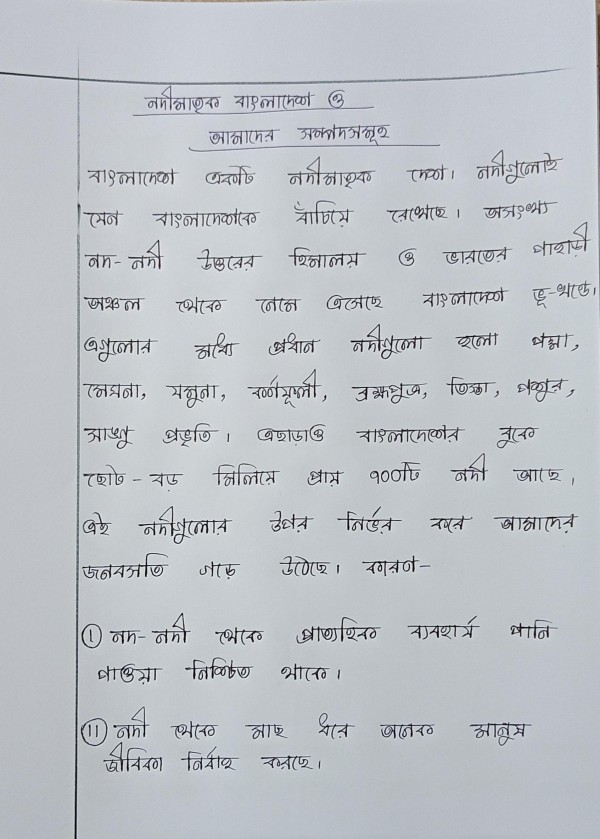 নদীমাতৃক বাংলাদেশ ও
আমাদের সম্পদসমূহ
বাংলাদেশ একটি নদীমাতৃক দেশ। নদীগুলোই
যেন বাংলাদেশকে বাঁচিয়ে রেখেছে। অসংখ্য
নদ-নদী উত্তরের হিমালয় ও ভারতের পাহাড়ী
অঞ্চল থেকে নেমে এসেছে বাংলাদেশ ভূ-খন্ডে।
এগুলোর মধ্যে প্রধান নদীগুলো হলো পদ্মা,
মেঘনা, যমুনা, কর্ণফুলী, ব্রহ্মপুত্র, তিস্তা, পশুর,
সাঙ্গু প্রভৃতি। এছাড়াও বাংলাদেশের বুকে
ছোট-বড় মিলিয়ে প্রায় ৭০০টি নদী আছে।
এই নদীগুলোর উপর নির্ভর করে আমাদের
জনবসতি গড়ে উঠেছে। কারণ-
(i) নদ-নদী থেকে প্রাত্যহিক ব্যবহার্য পানি
পাওয়া নিশ্চিত থাকে।
(ii) নদী থেকে মাছ ধরে অনেক মানুষ
জীবিকা নির্বাহ করছে।